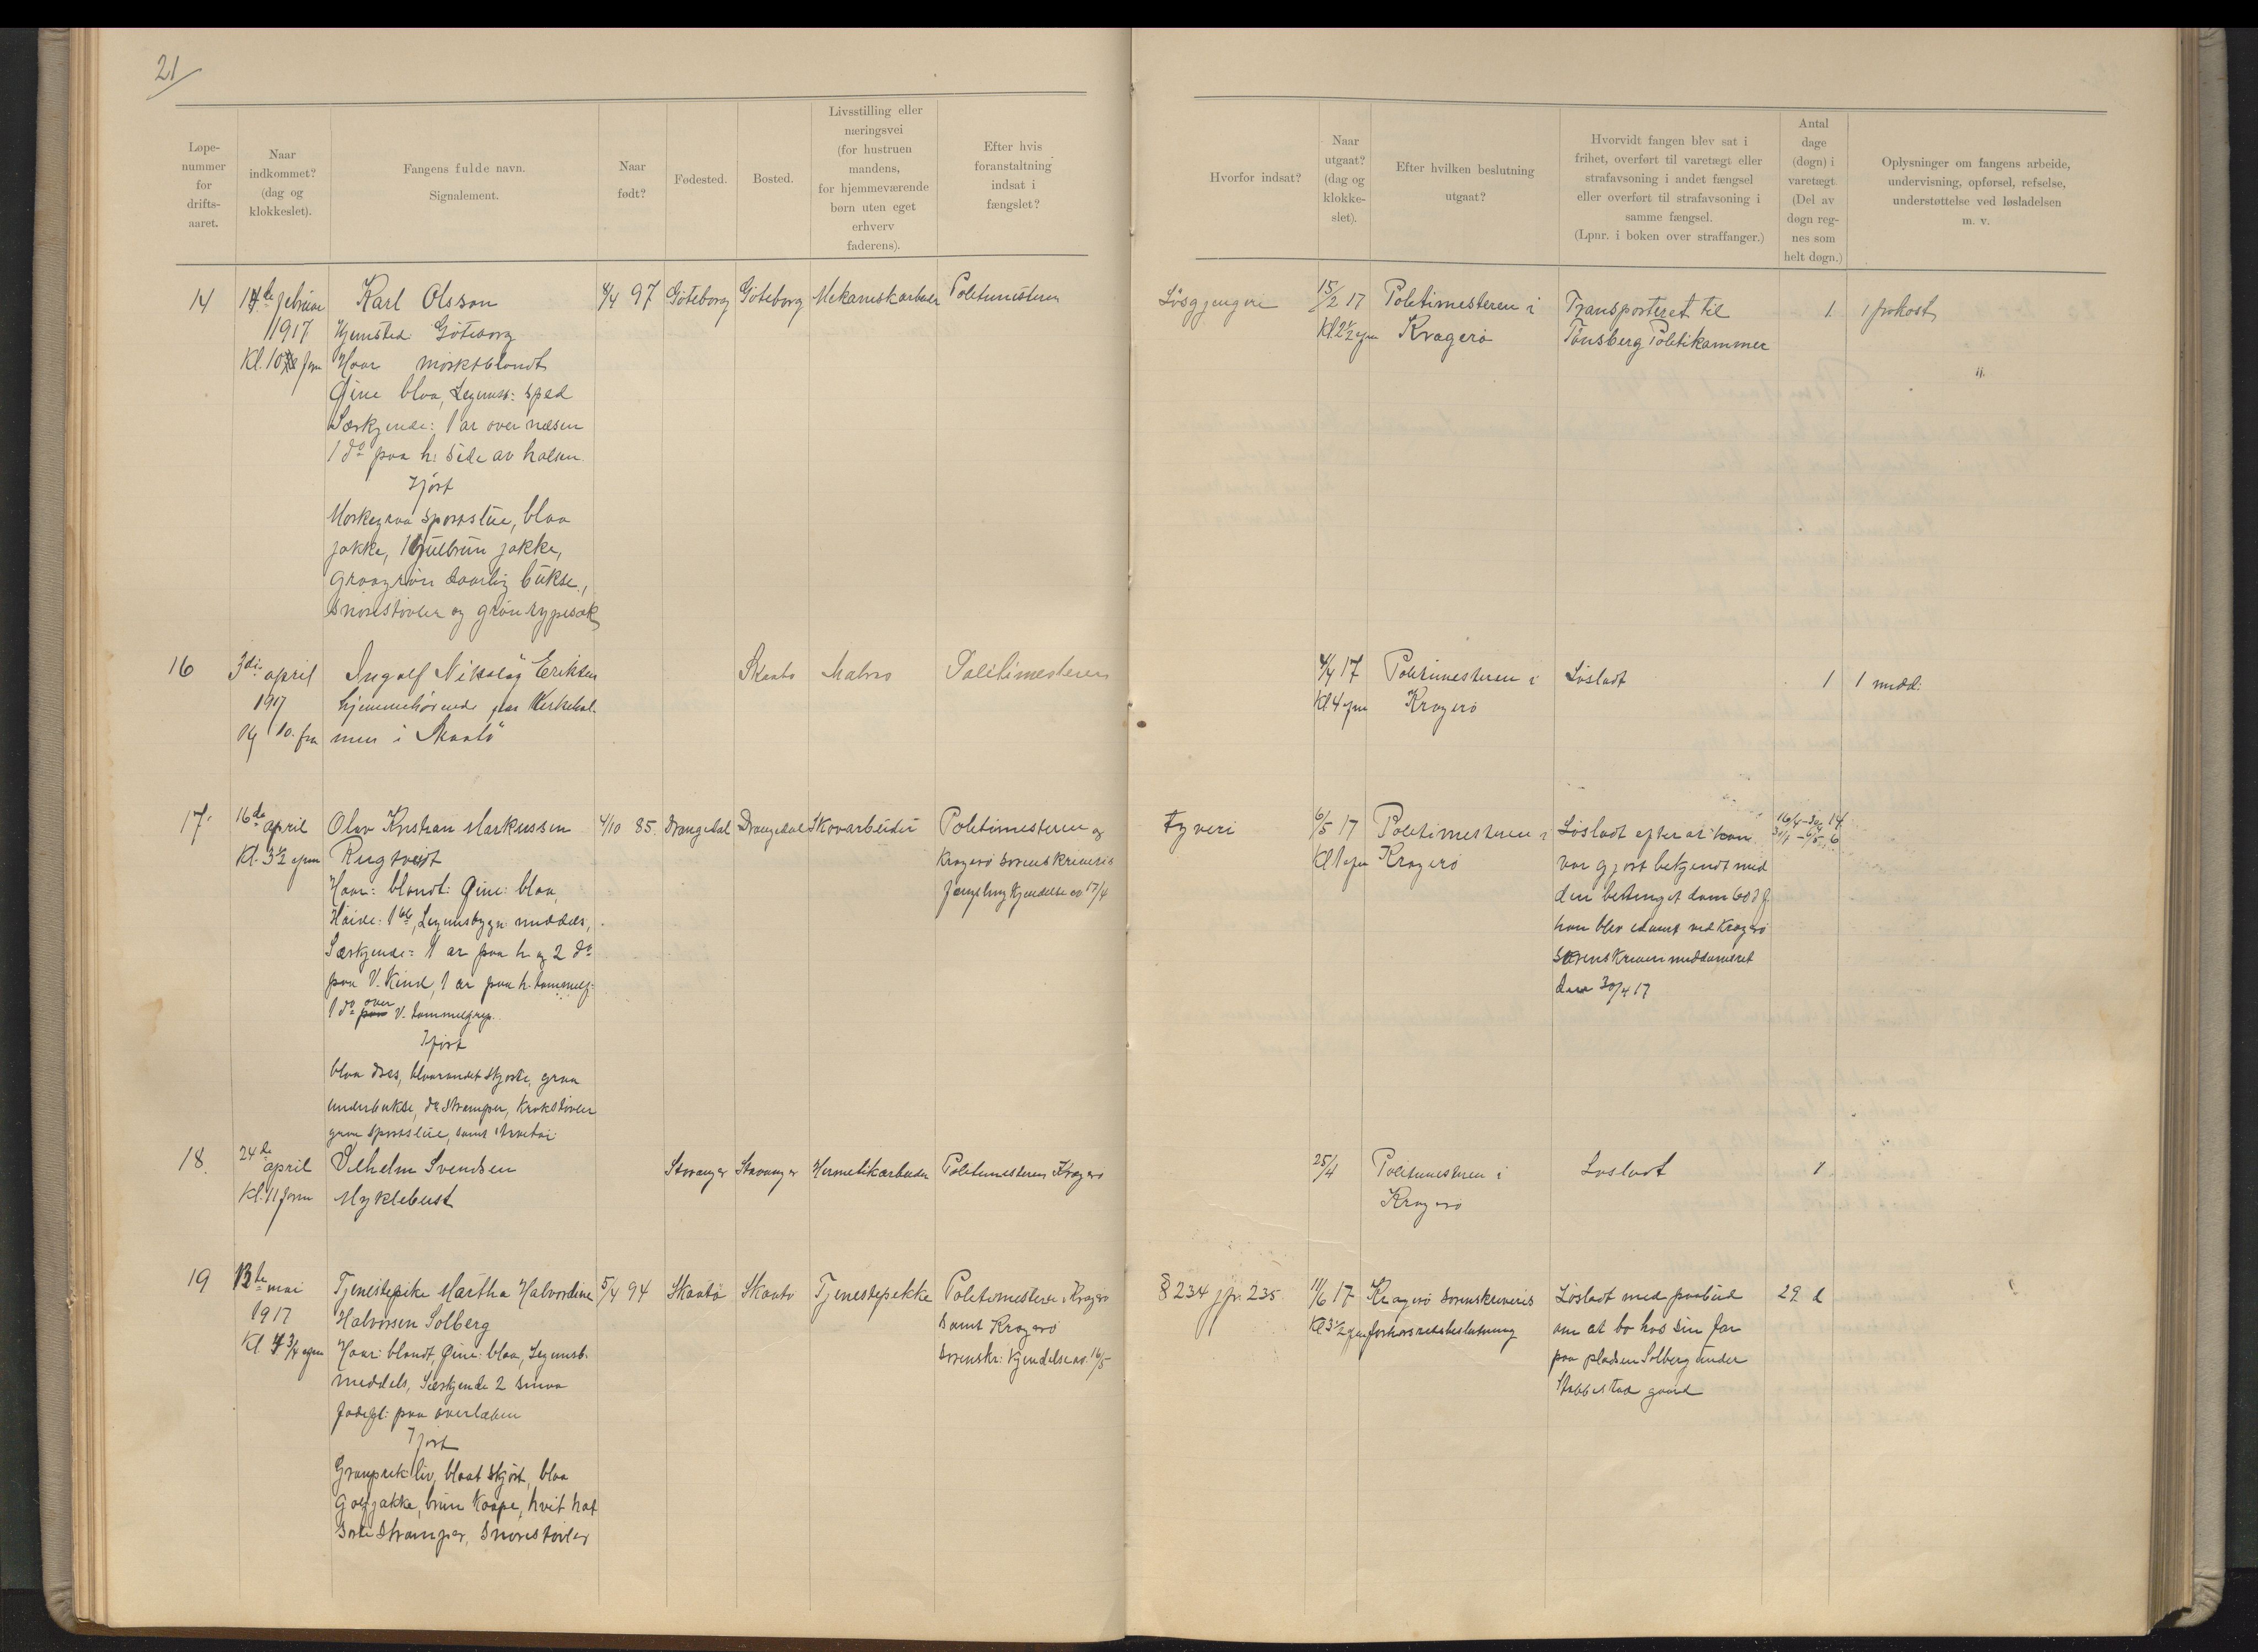 21/
Løpe-
nummer
for
drifts-
aaret.
Naar
indkommet?
(dag og
klokkeslet).
Fangens fulde navn.
Signalement.
Naar
født?
Fødested.
Bosted.
Livsstilling eller
næringsvei
(for hustruen
mandens,
for hjemmeværende
børn uten eget
erhverv
faderens).
Efter hvis
foranstaltning
indsat i
fængslet?
Hvorfor indsat?
Naar
utgaat?
(dag og
klokke-
slet).
Efter hvilken beslutning
utgaat?
Hvorvidt fangen blev sat i
frihet, overført til varetægt eller
strafavsoning i andet fængsel
eller overført til strafavsoning i
samme fængsel.
(Lpnr. i boken over straffanger.)
Antal
dage
(døgn) i
varetægt.
(Del av
døgn reg-
nes som
helt døgn.)
Oplysninger om fangens arbeide,
undervisning, opførsel, refselse,
understøttelse ved løsladelsen
m. v.
14
14de februar
1917
Kl. 10 fm
Karl Olsson
Hjemsted: Göteborg
Haar mørktblondt
Øine blaa, Legemsb: sped
Særkjende: 1 ar over næsen
1 do paa h: side av halsen.
Iført
Mørkegraa sportslue, blaa
jakke, 1 gulbrun jakke,
graagrøn daarlig bukse,
snørestøvler og grøn rypesæk
4/4 97
Göteborg
Göteborg
Mekaniskarbeider
Politimesteren
Løsgjengeri
15/2 17
Kl. 2½ efm
Politimesteren i
Kragerø
Transporteret til
Tønsberg Politikammer
1
1 frokost
16
3die april
1917
Kl 10. fm
Ingolf Nikolai Eriksen
hjemmehørende paa Kirkehol-
men i Skaatö
Skaatö
Matros
Politimesteren
4/4 17
Kl 4 efm
Politimesteren i
Kragerø
Løsladt
1
1 midd:
17.
16de april
Kl. 3½ efm
Olav Kristian Markussen
Rugtveit
Haar: blondt: Øine: blaa,
Høide: 1 Legemsbygn: middels,
Særkjende: 1 ar paa h. og 2 do
paa V. Kind, 1 ar paa h. tommelf:
1 do paa over V. tommelfinger.
Iført
blaa dres, blaarandet skjorte, graa
underbukse, do strømper, krokstøvler
graa sportslue, samt
4/10 85.
Drangedal
Drangedal
Skovarbeider
Politimesteren og
Kragerø Sorenskriveris
fængslings Kjendelse av 17/4
Tyveri
6/5 17
Kl 1 efm
Politimesteren i
Kragerø
Løsladt efter at han
var gjort bekjendt med
den betinget dom 60 d f.
han blev idømt ved Kragerø
Sorenskriveri meddomsret
den 30/4 17
16/4 - 30/4 14
30/4 - 6/5 6
18.
24de april
Kl. 11 form
Vilhelm Svendsen
Myklebust
Stavanger
Stavanger
Hermetikarbeider
Politimesteren Kragerø
25/4
Politimesteren i
Kragerø
Løsladt
1
19
13de mai
1917
Kl 4¾ efm
Tjenestepike Martha Halvordine
Halvorsen Solberg
Haar: blondt, Øine: blaa, Legemsb.
middels, Særkjende 2 smaa
fødefl: paa overlæben
Iført
Graaprik. liv, blaat skjørt, blaa
Golfjakke, brun Kaape, hvit hat
sorte strømper, snørestøvler
5/4 94
Skaatö
Skaatö
Tjenestepike
Politimesteren i Kragerø
samt Kragerø
Sorenskr: Kjendelse av 16/5
§ 234 jfr. 235
11/6 17
Kl 3½ efm
Kragerø Sorenskriveris
forhørsretsbeslutning
Løsladt med paabud
om at bo hos sin far
paa pladsen Solberg under
Stabbestad gaard
29 d